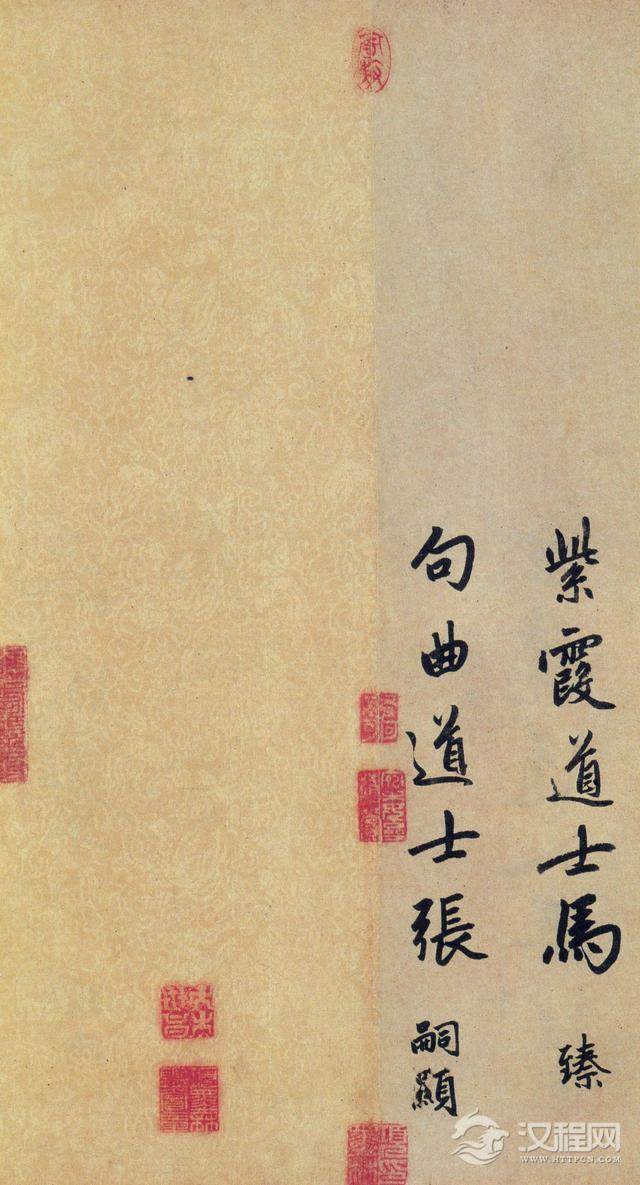 紫霞道士馬臻
句曲道士張嗣顯
汉程网
WWW.HTTPCN.COM